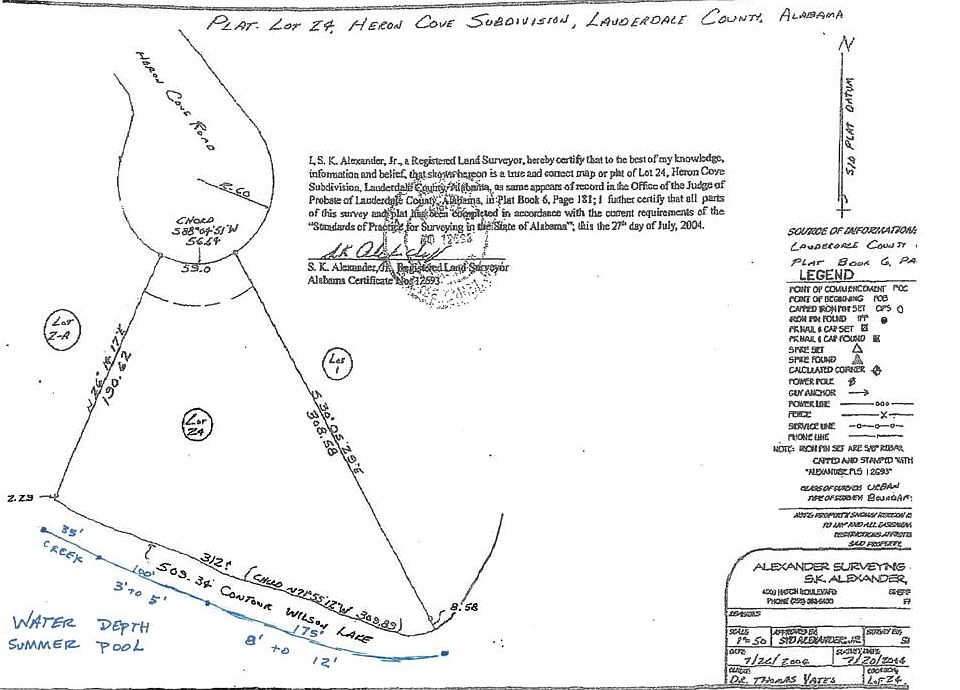 PLAT LOT 24, HERON COVE SUBDIVISION, LAUDERDALE COUNTY, ALABAMA
HERON COVE ROAD
N
S/D PLAT DATUM
R-60
CHORD
S88°09'51"W
56.64
59.0
I, S. K. Alexander, Jr., a Registered Land Surveyor, hereby certify that to the best of my knowledge,
information and belief, that shown hereon is a true and correct map or plat of Lot 24, Heron Cove
Subdivision, Lauderdale County, Alabama, as same appears of record in the Office of the Judge of
Probate of Lauderdale County, Alabama, in Plat Book 6, Page 181; I further certify that all parts
of this survey and plat has been completed in accordance with the current requirements of the
"Standards of Practice for Surveying in the State of Alabama"; this the 27th day of July, 2004.
S. K. Alexander, Jr., Registered Land Surveyor
Alabama Certificate No. 12693
SOURCE OF INFORMATION:
LAUDERDALE COUNTY
PLAT BOOK 6, PA
LEGEND
POINT OF COMMENCEMENT POC
POINT OF BEGINNING POB
CAPPED IRON PIN SET CIPS
IRON PIN FOUND IPF
PK NAIL & CAP SET
PK NAIL & CAP FOUND
SPIKE SET
SPIKE FOUND
CALCULATED CORNER
POWER POLE
GUY ANCHOR
POWER LINE
FENCE
SERVICE LINE
PHONE LINE
NOTE: IRON PIN SET ARE 5/8" REBAR
CAPPED AND STAMPED WITH
"ALEXANDER PLS 12693"
CLASS OF SURVEY: URBAN
TYPE OF SURVEY: BOUNDAR
NOTE: PROPERTY SHOWN HEREON IS
TO ANY AND ALL EASEMEN
RESTRICTIONS AFFECTING
SAID PROPERTY.
LOT
2-A
LOT
1
LOT
24
190.62
S 30° 05' 29" E
308.58
2.29
312±
(CHORD N71°55'12"W 309.89)
509.34' CONTOUR WILSON LAKE
8.58
35'
CREEK
100'
3' TO 5'
175'
8' TO 12'
WATER DEPTH
SUMMER POOL
ALEXANDER SURVEYING
S.K. ALEXANDER,
PHONE
REVISIONS
SCALE
1"=50
APPROVED BY:
SYD ALEXANDER, JR
SURVEY BY:
DATE:
7/26/2004
SURVEY DATE:
7/20/2004
CLIENT:
DR. THOMAS YATES
LOCATION:
LOT 24